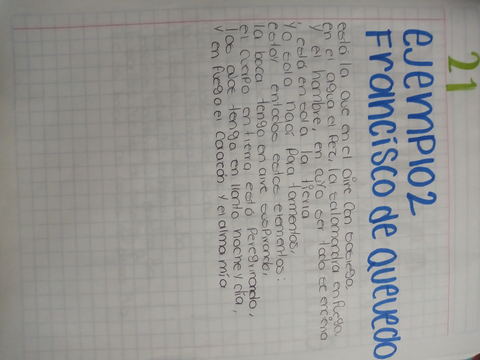 21
Ejemplo 2
Francisco de Quevedo
está la ave en el aire con sosiego,
en el agua el pez, la salamandra en fuego,
y el hombre, en cuyo ser todo se encierra
está en sola la tierra
yo solo nací para tormentos,
estoy en todos estos elementos:
la boca tengo en aire suspirando,
el cuerpo en tierra está peregrinando,
los ojos tengo en llanto noche y día,
y en fuego el corazón y el alma mía